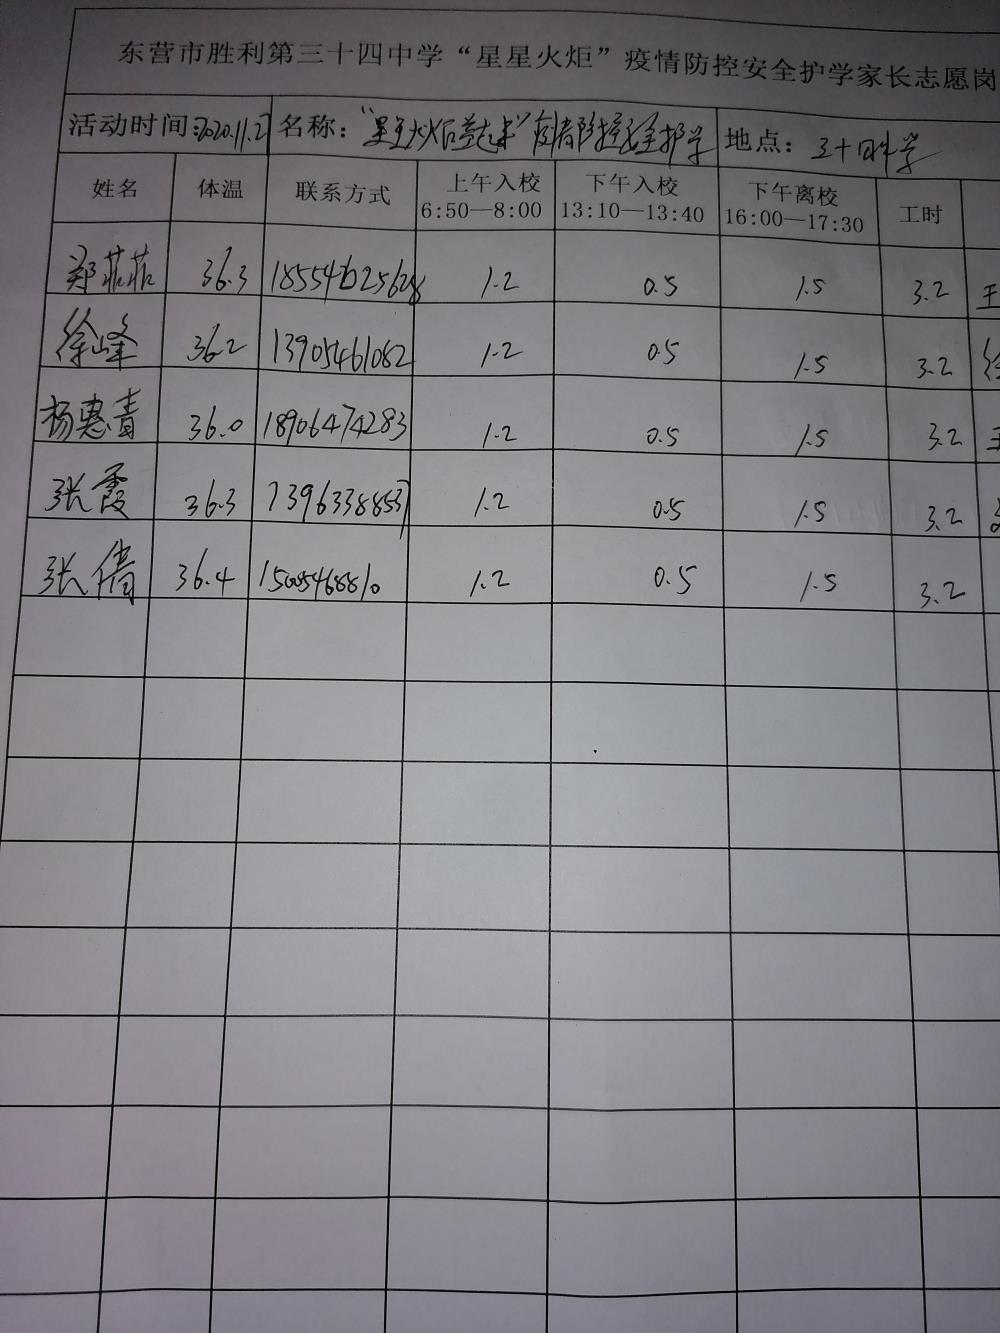 东营市胜利第三十四中学“星星火炬”疫情防控安全护学家长志愿岗
活动时间:2020.11.27 名称: 疫情防控安全护学 地点: 三十四中学
姓名 体温 联系方式 上午入校 6:50—8:00 下午入校 13:10—13:40 下午离校 16:00—17:30 工时
郑菲菲 36.3 1.2 0.5 1.5 3.2 王
徐峰 36.2 13905461082 1.2 0.5 1.5 3.2
杨惠青 36.0 18906474283 1.2 0.5 1.5 3.2 王
张霞 36.3 13963388537 1.2 0.5 1.5 3.2
张倩 36.4 15005468810 1.2 0.5 1.5 3.2